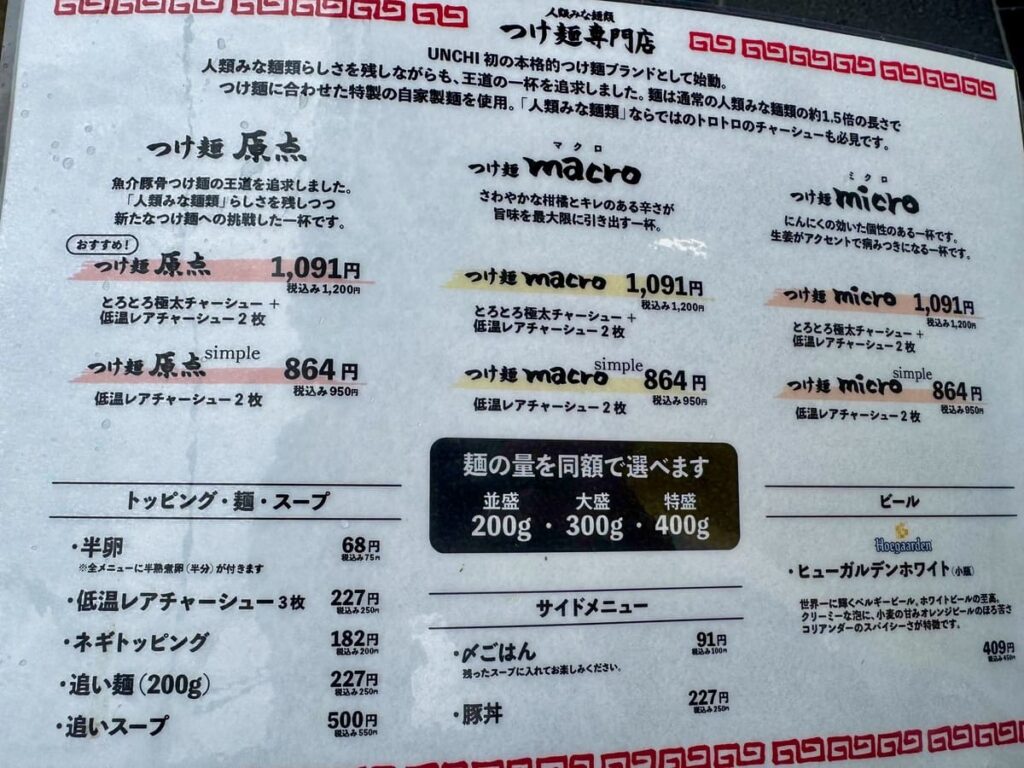 人類みな麺類
つけ麺専門店
UNCHI 初の本格的つけ麺ブランドとして始動。
人類みな麺類らしさを残しながらも、王道の一杯を追求しました。麺は通常の人類みな麺類の約1.5倍の長さで
つけ麺に合わせた特製の自家製麺を使用。「人類みな麺類」ならではのトロトロのチャーシューも必見です。
つけ麺 原点
魚介豚骨つけ麺の王道を追求しました。
「人類みな麺類」らしさを残しつつ
新たなつけ麺への挑戦した一杯です。
おすすめ!
つけ麺 原点 1,091円
税込み1,200円
とろとろ極太チャーシュー +
低温レアチャーシュー2枚
つけ麺 原点 simple 864円
税込み950円
低温レアチャーシュー2枚
マクロ
つけ麺 macro
さわやかな柑橘とキレのある辛さが
旨味を最大限に引き出す一杯。
つけ麺 macro 1,091円
税込み1,200円
とろとろ極太チャーシュー +
低温レアチャーシュー2枚
つけ麺 macro simple 864円
税込み950円
低温レアチャーシュー2枚
ミクロ
つけ麺 micro
にんにくの効いた個性のある一杯です。
生姜がアクセントで病みつきになる一杯です。
つけ麺 micro 1,091円
税込み1,200円
とろとろ極太チャーシュー +
低温レアチャーシュー2枚
つけ麺 micro simple 864円
税込み950円
低温レアチャーシュー2枚
麺の量を同額で選べます
並盛 大盛 特盛
200g・300g・400g
トッピング・麺・スープ
・半卵 68円
税込み75円
※全メニューに半熟煮卵(半分)が付きます
・低温レアチャーシュー3枚 227円
税込み250円
・ネギトッピング 182円
税込み200円
・追い麺(200g) 227円
税込み250円
・追いスープ 500円
税込み550円
サイドメニュー
・〆ごはん 91円
税込み100円
残ったスープに入れてお楽しみください。
・豚丼 227円
税込み250円
ビール
Hoegaarden
・ヒューガルデンホワイト(小瓶)
世界一に輝くベルギービール。ホワイトビールの至高。
クリーミーな泡に、小麦の甘みオレンジピールのほろ苦さ
コリアンダーのスパイシーさが特徴です。
409円
税込み450円